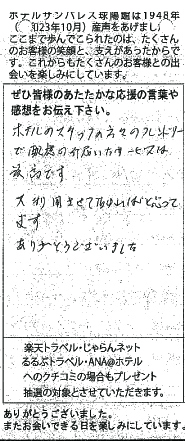 ホテルサンパレス球陽館は1948年
(昭和23年10月)産声をあげまし
ここまで歩んでこられたのは、たくさん
のお客様の笑顔と、支えがあったからで
す。これからもたくさんのお客様との出
会いを楽しみにしています。
ぜひ皆様のあたたかな応援の言葉や
感想をお伝え下さい。
ホテルのスタッフの方々のフレンドリー
で
サービスは
最高です
又利用させて頂ければと思って
ます
ありがとうございました
楽天トラベル・じゃらんネット
るるぶトラベル・ANA@ホテル
へのクチコミの場合もプレゼント
抽選の対象とさせていただきます。
ありがとうございました。
またお会いできる日を楽しみにしています。